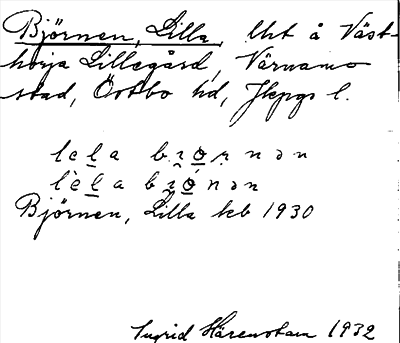 Björnen, Lilla, lht å Väst-
horja Lillegård, Värnamo
stad, Östbo hd, Jkpgs l.
Björnen, Lilla kb 1930
Ingrid Härenstam 1932